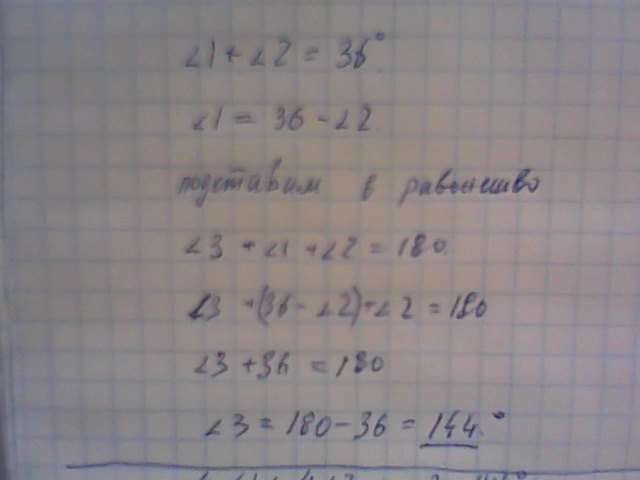 ∠1 + ∠2 = 36°.
∠1 = 36 - ∠2
подставим в равенство
∠3 + ∠1 + ∠2 = 180
∠3 + (36 - ∠2) + ∠2 = 180
∠3 + 36 = 180
∠3 = 180 - 36 = 144.°